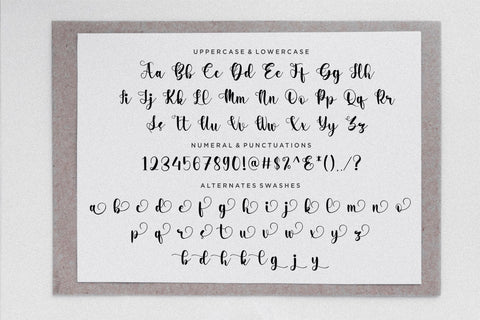 UPPERCASE & LOWERCASE
Aa Bb Cc Dd Ee Ff Gg Hh
Ii Jj Kk Ll Mm Nn Oo Pp Qq Rr
Ss Tt Uu Vv Ww Xx Yy Zz
NUMERAL & PUNCTUATIONS
1234567890!@#$%^&*()../?
ALTERNATES SWASHES
a b c d e f g h i j k l m n o
p q r s t u v w x y z
b d h k l g j y